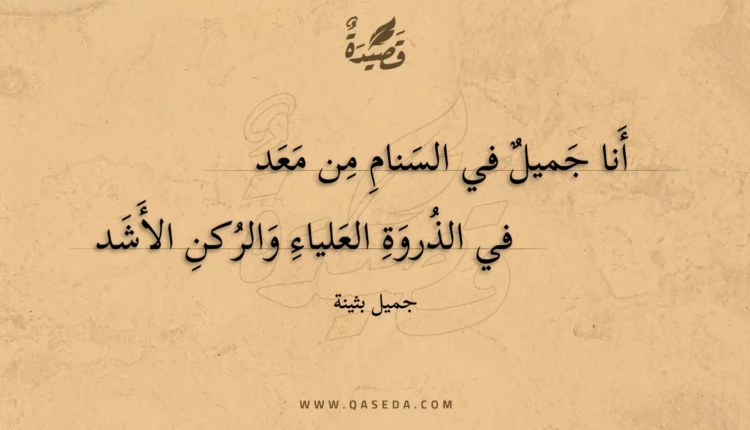 قَصِيْدَةٌ
أَنا جَميلٌ في السَنامِ مِن مَعَد
في الذُروَةِ العَلياءِ وَالرُكنِ الأَشَد
جميل بثينة
WWW.QASEDA.COM